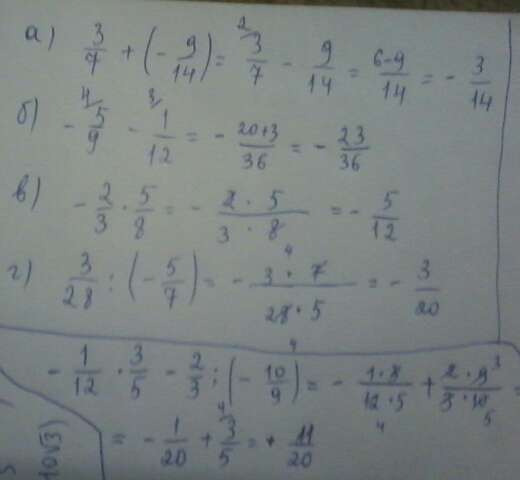 а) 3/7 + (- 9/14) = 3/7 - 9/14 = 6-9/14 = - 3/14
б) - 5/9 - 1/12 = - 20+3/36 = - 23/36
в) - 2/3 · 5/8 = - 2 · 5/3 · 8 = - 5/12
г) 3/28 : (- 5/7) = - 3 · 7/28 · 5 = - 3/20
- 1/12 · 3/5 - 2/3 : (- 10/9) = - 1 · 3/12 · 5 + 2 · 9/3 · 10 =
= - 1/20 + 3/5 = + 11/20
10√3)